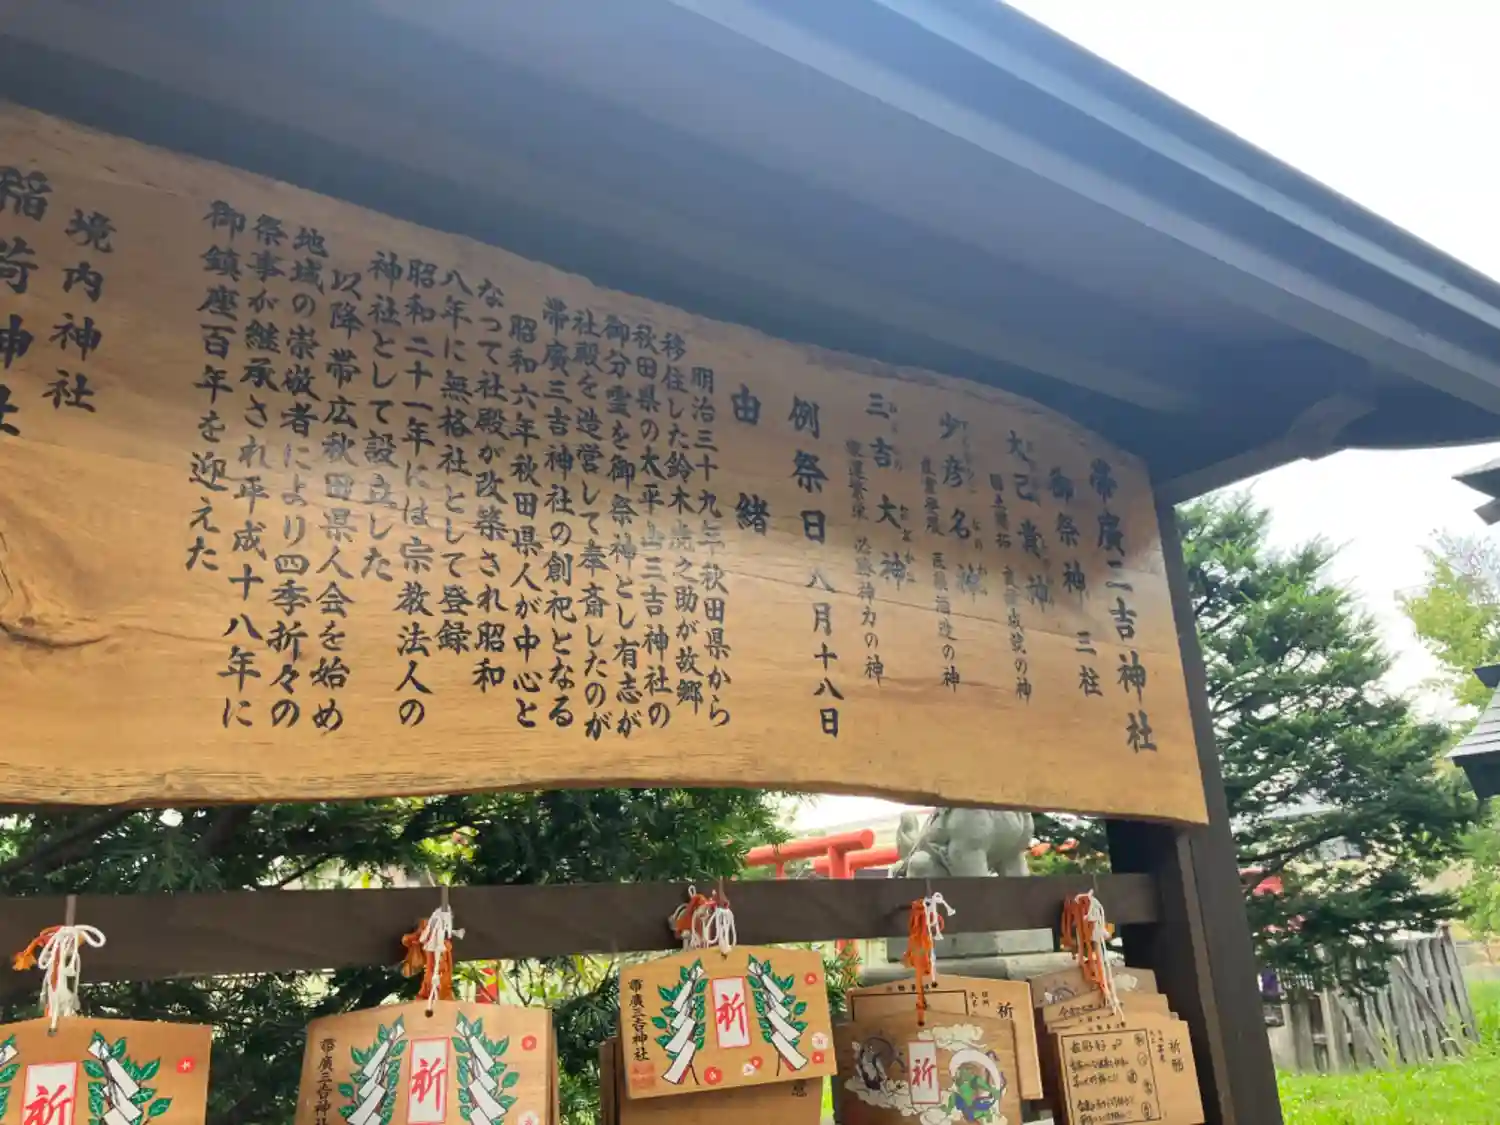 帯廣三吉神社
御祭神 三柱
大己貴神
国土開拓 農績成就の神
少彦名神
医薬福造の神
三吉大神
家運繁栄 必勝神力の神
例祭日 八月十八日
由緒
明治三十九年秋田県から
移住した鈴木虎之助が故郷
秋田県の太平山三吉神社の
御分霊を御祭神とし有志が
社殿を造営して奉斎したのが
帯廣三吉神社の創祀となる
昭和六年秋田県人が中心と
なって社殿が改築され昭和
八年に無格社として登録
昭和二十一年には宗教法人の
神社として設立した
以降帯広秋田県人会を始め
地域の崇敬者により四季折々の
祭事が継承され平成十八年に
御鎮座百年を迎えた
境内神社
稲荷神社
祈
帯廣三吉神社
祈
帯廣三吉神社
祈
祈
祈
祈願